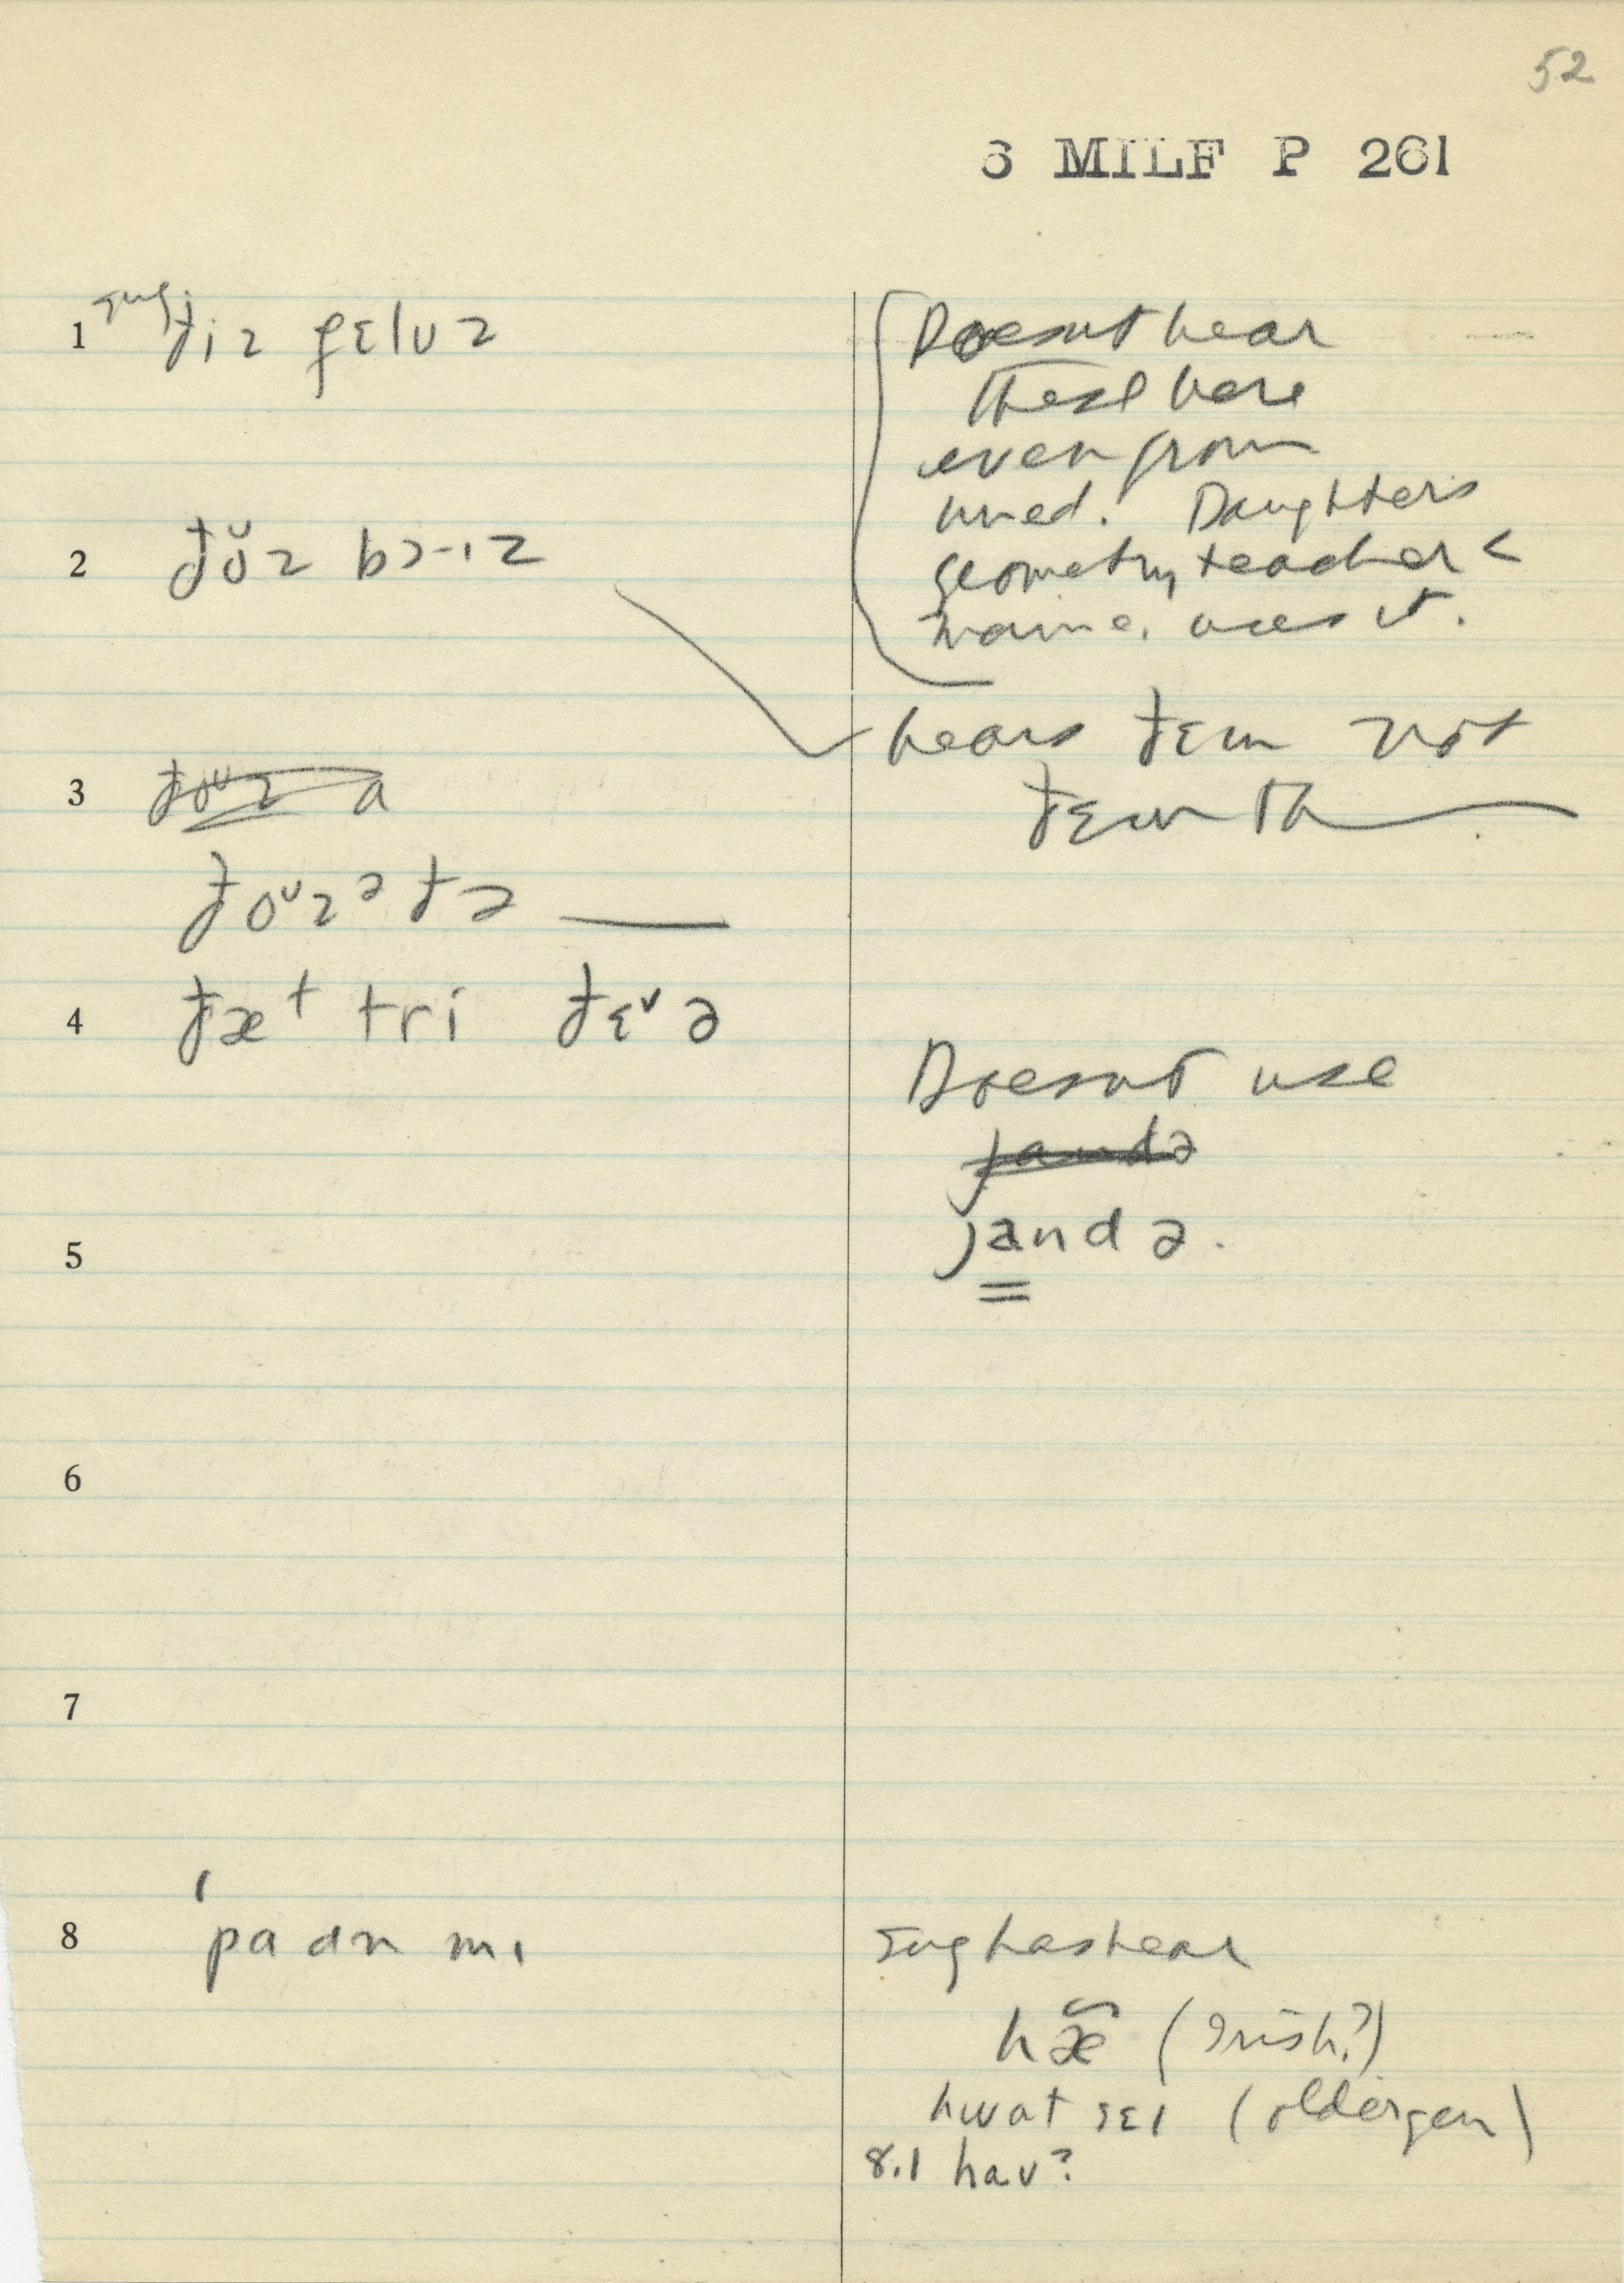 52
6 MILF P 261
1 sug. ðiz fɛlʊz
2 ðŏz bɔɪz
3
ðoᶷzᵊ ðə
4 ðæt tri ðɛᵛə
5
6
7
8 ˈpadn mɪ
Doesnt hear
these here
even from
uned. Daughters
geometry teacher <
Maine, uses it.
hears ðɛm not
ðɛm th
Doesnt use
jandə
jandə.
sug has hear
hæ̃ (Irish?)
hwat sɛɪ (older gen)
8.1 haʊ?